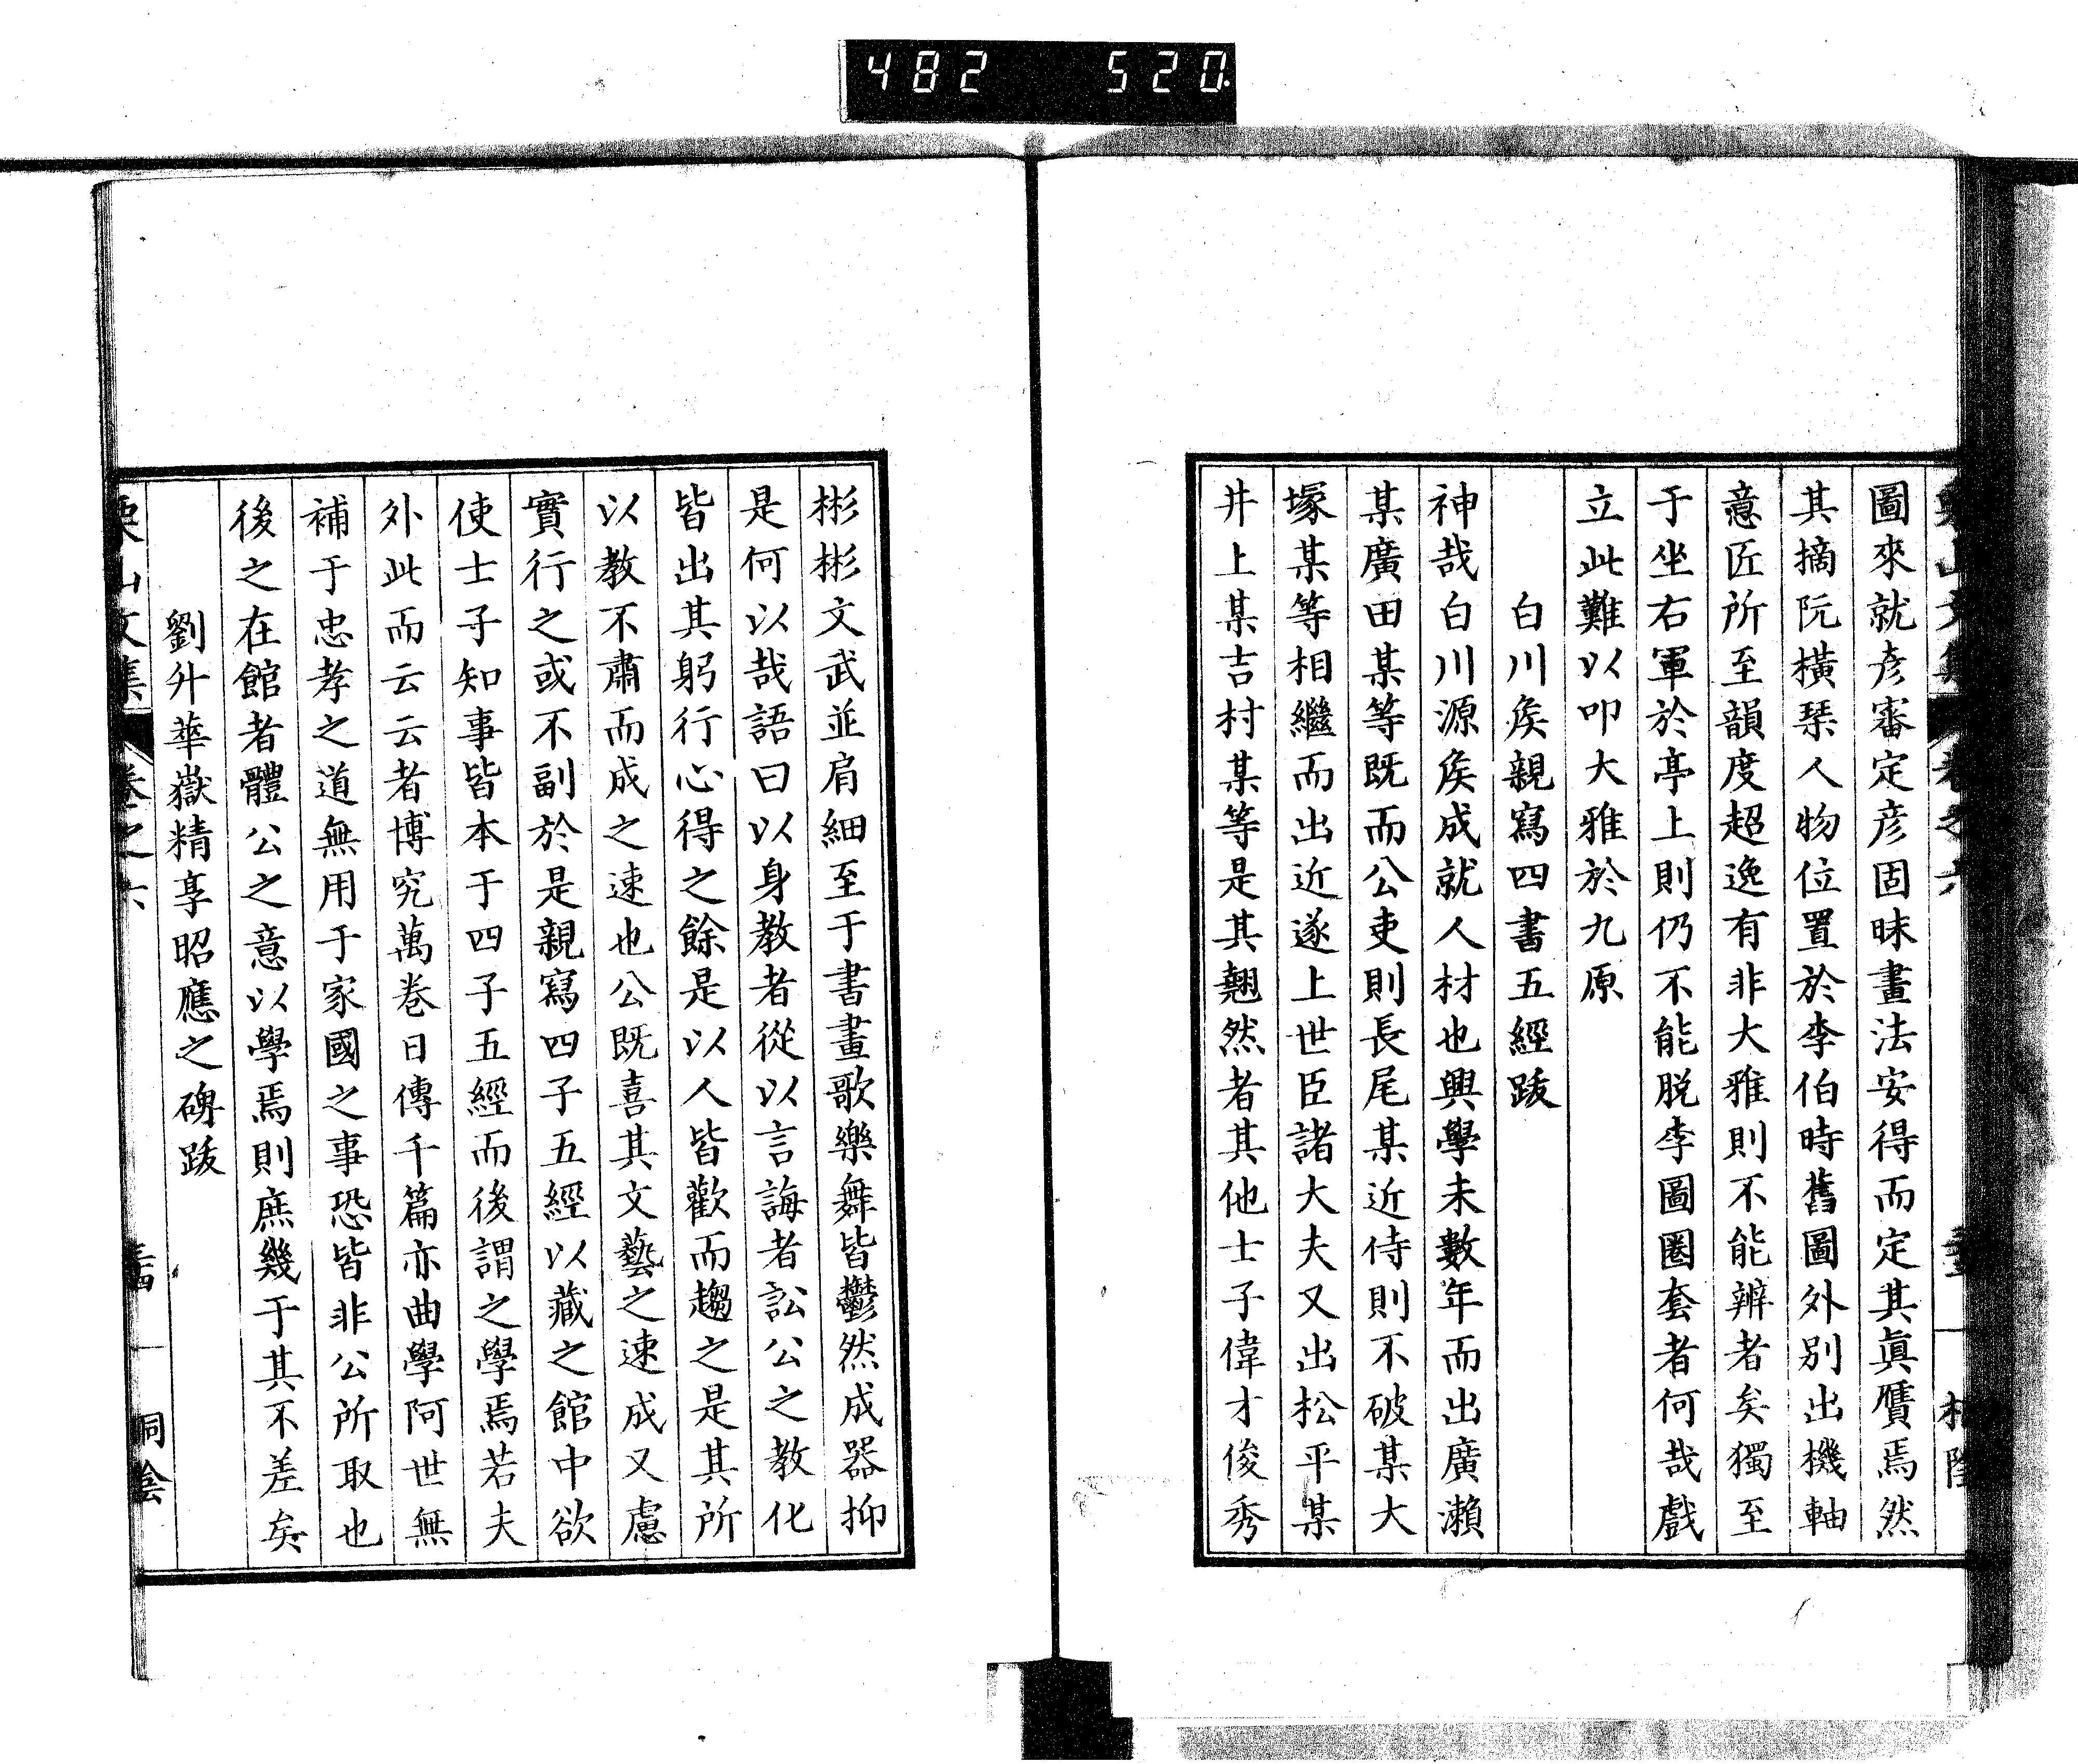 482 520
圖來就彥審定彥固昧畫法安得而定其眞贋焉然
其摘阮橫琴人物位置於李伯時舊圖外別出機軸
意匠所至韻度超逸有非大雅則不能辨者矣獨至
于坐右軍於亭上則仍不能脱李圖圈套者何哉戲
立此難以叩大雅於九原
白川矦親寫四書五經跋
神哉白川源矦成就人材也興學未數年而出廣瀨
某廣田某等既而公吏則長尾某近侍則不破某大
塚某等相繼而出近遂上世臣諸大夫又出松平某
井上某吉村某等是其翹然者其他士子偉才俊秀
彬彬文武並肩細至于書畫歌樂舞皆鬱然成器抑
是何以哉語曰以身教者從以言誨者訟公之教化
皆出其躬行心得之餘是以人皆歡而趨之是其所
以教不肅而成之速也公既喜其文藝之速成又慮
實行之或不副於是親寫四子五經以藏之館中欲
使士子知事皆本于四子五經而後謂之學焉若夫
外此而云云者博究萬卷日傳千篇亦曲學阿世無
補于忠孝之道無用于家國之事恐皆非公所取也
後之在館者體公之意以學焉則庶幾于其不差矣
劉升華嶽精享昭應之碑跋
栗山文集 卷之六